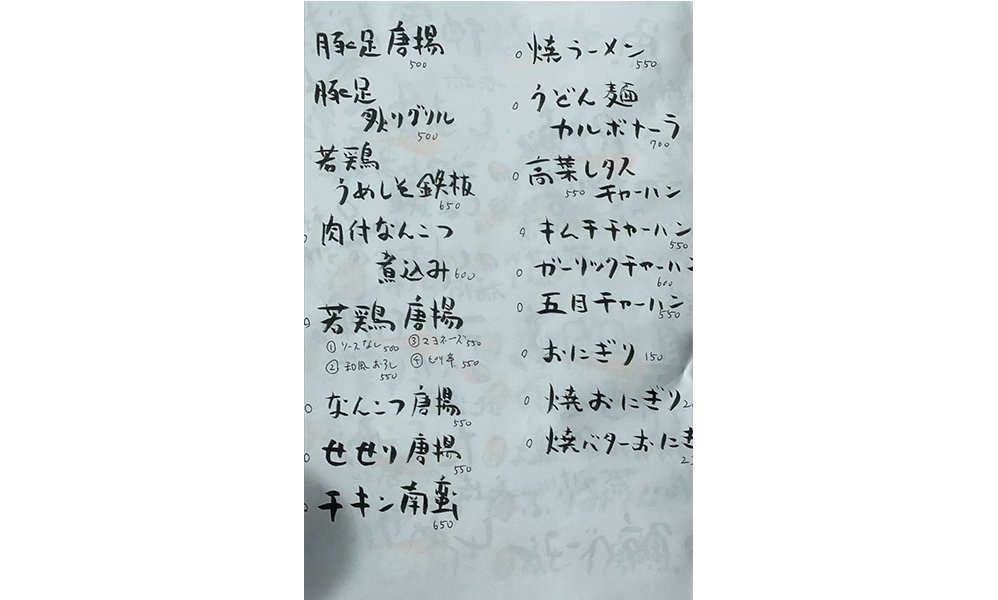 豚足唐揚
500
豚足
炙りグリル
500
若鶏
うめしそ鉄板
650
肉付なんこつ
煮込み 600
若鶏 唐揚
① ソースなし 500 ③ マヨネーズ 550
② 和風おろし 550 ④ ピリ辛 550
なんこつ唐揚
550
せせり唐揚
550
チキン南蛮
650
焼ラーメン
550
うどん麺
カルボナーラ
700
高菜レタス
550 チャーハン
キムチチャーハン
550
ガーリックチャーハン
600
五目チャーハン
550
おにぎり 150
焼おにぎり
焼バターおにぎ